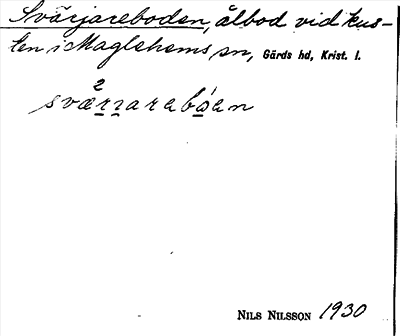 Svärjareboden, ålbod vid kus-
ten i Maglehems sn, Gärds hd, Krist. l.
2
sværɪarabǻen
NILS NILSSON 1930